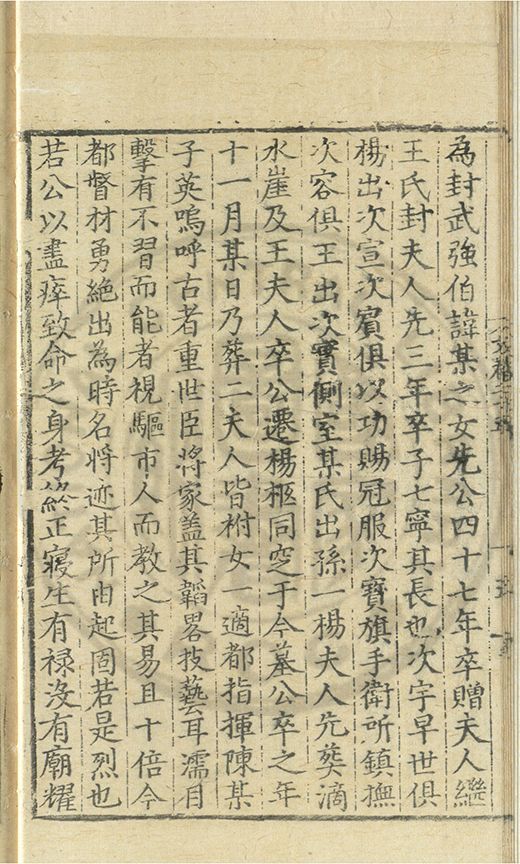 為封武強伯諱某之女先公四十七年卒贈夫人繼
王氏封夫人先三年卒子七寧其長也次宇早世俱
楊出次宣次賓俱以功賜冠服次寶旗手衛所鎮撫
次容俱王出次實側室某氏出孫一楊夫人先葬滴
水崖及王夫人卒公遷楊柩同窆于今墓公卒之年
十一月某日乃葬二夫人皆祔女一適都指揮陳某
子英嗚呼古者重世臣將家盖其韜畧技藝耳濡目
擊有不習而能者視驅市人而教之其易且十倍今
都督材勇絶出為時名將迹其所由起固若是烈也
若公以盡瘁致命之身考終正寢生有禄沒有廟耀